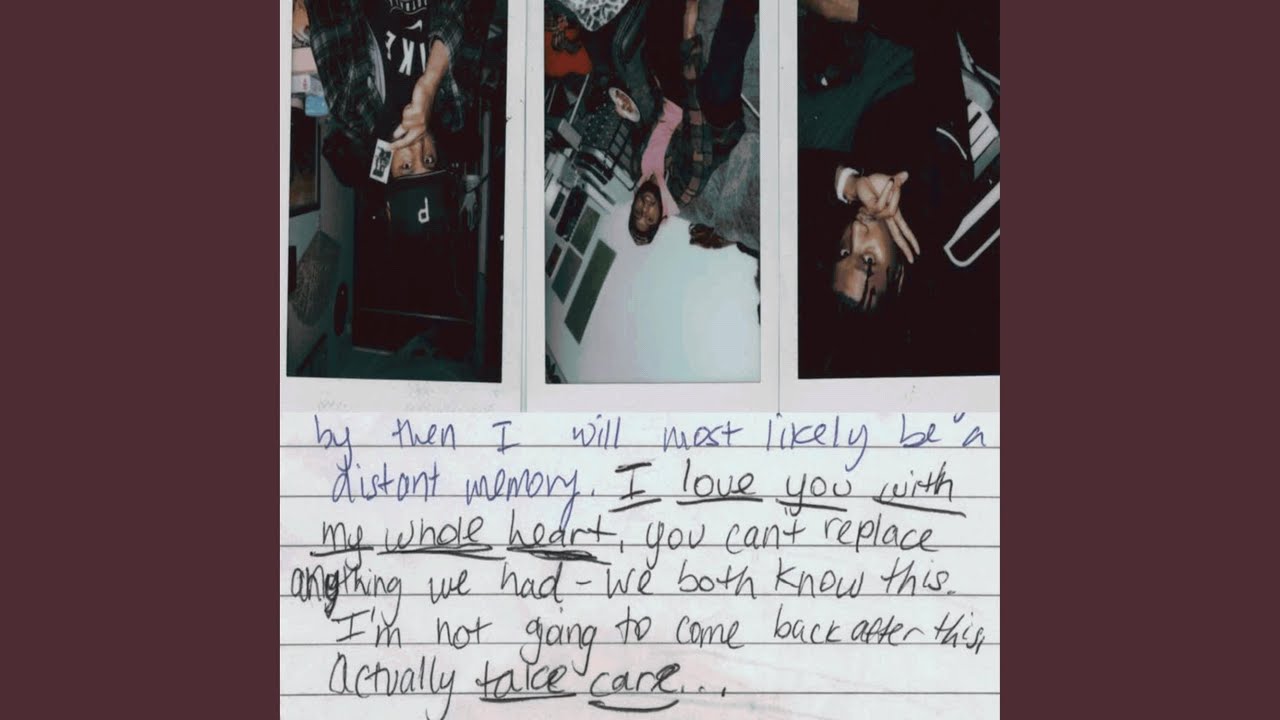 NIKE
P
by then I will most likely be a
distant memory. I love you with
my whole heart, you can't replace
anything we had – we both know this.
I'm not going to come back after this,
Actually take care...